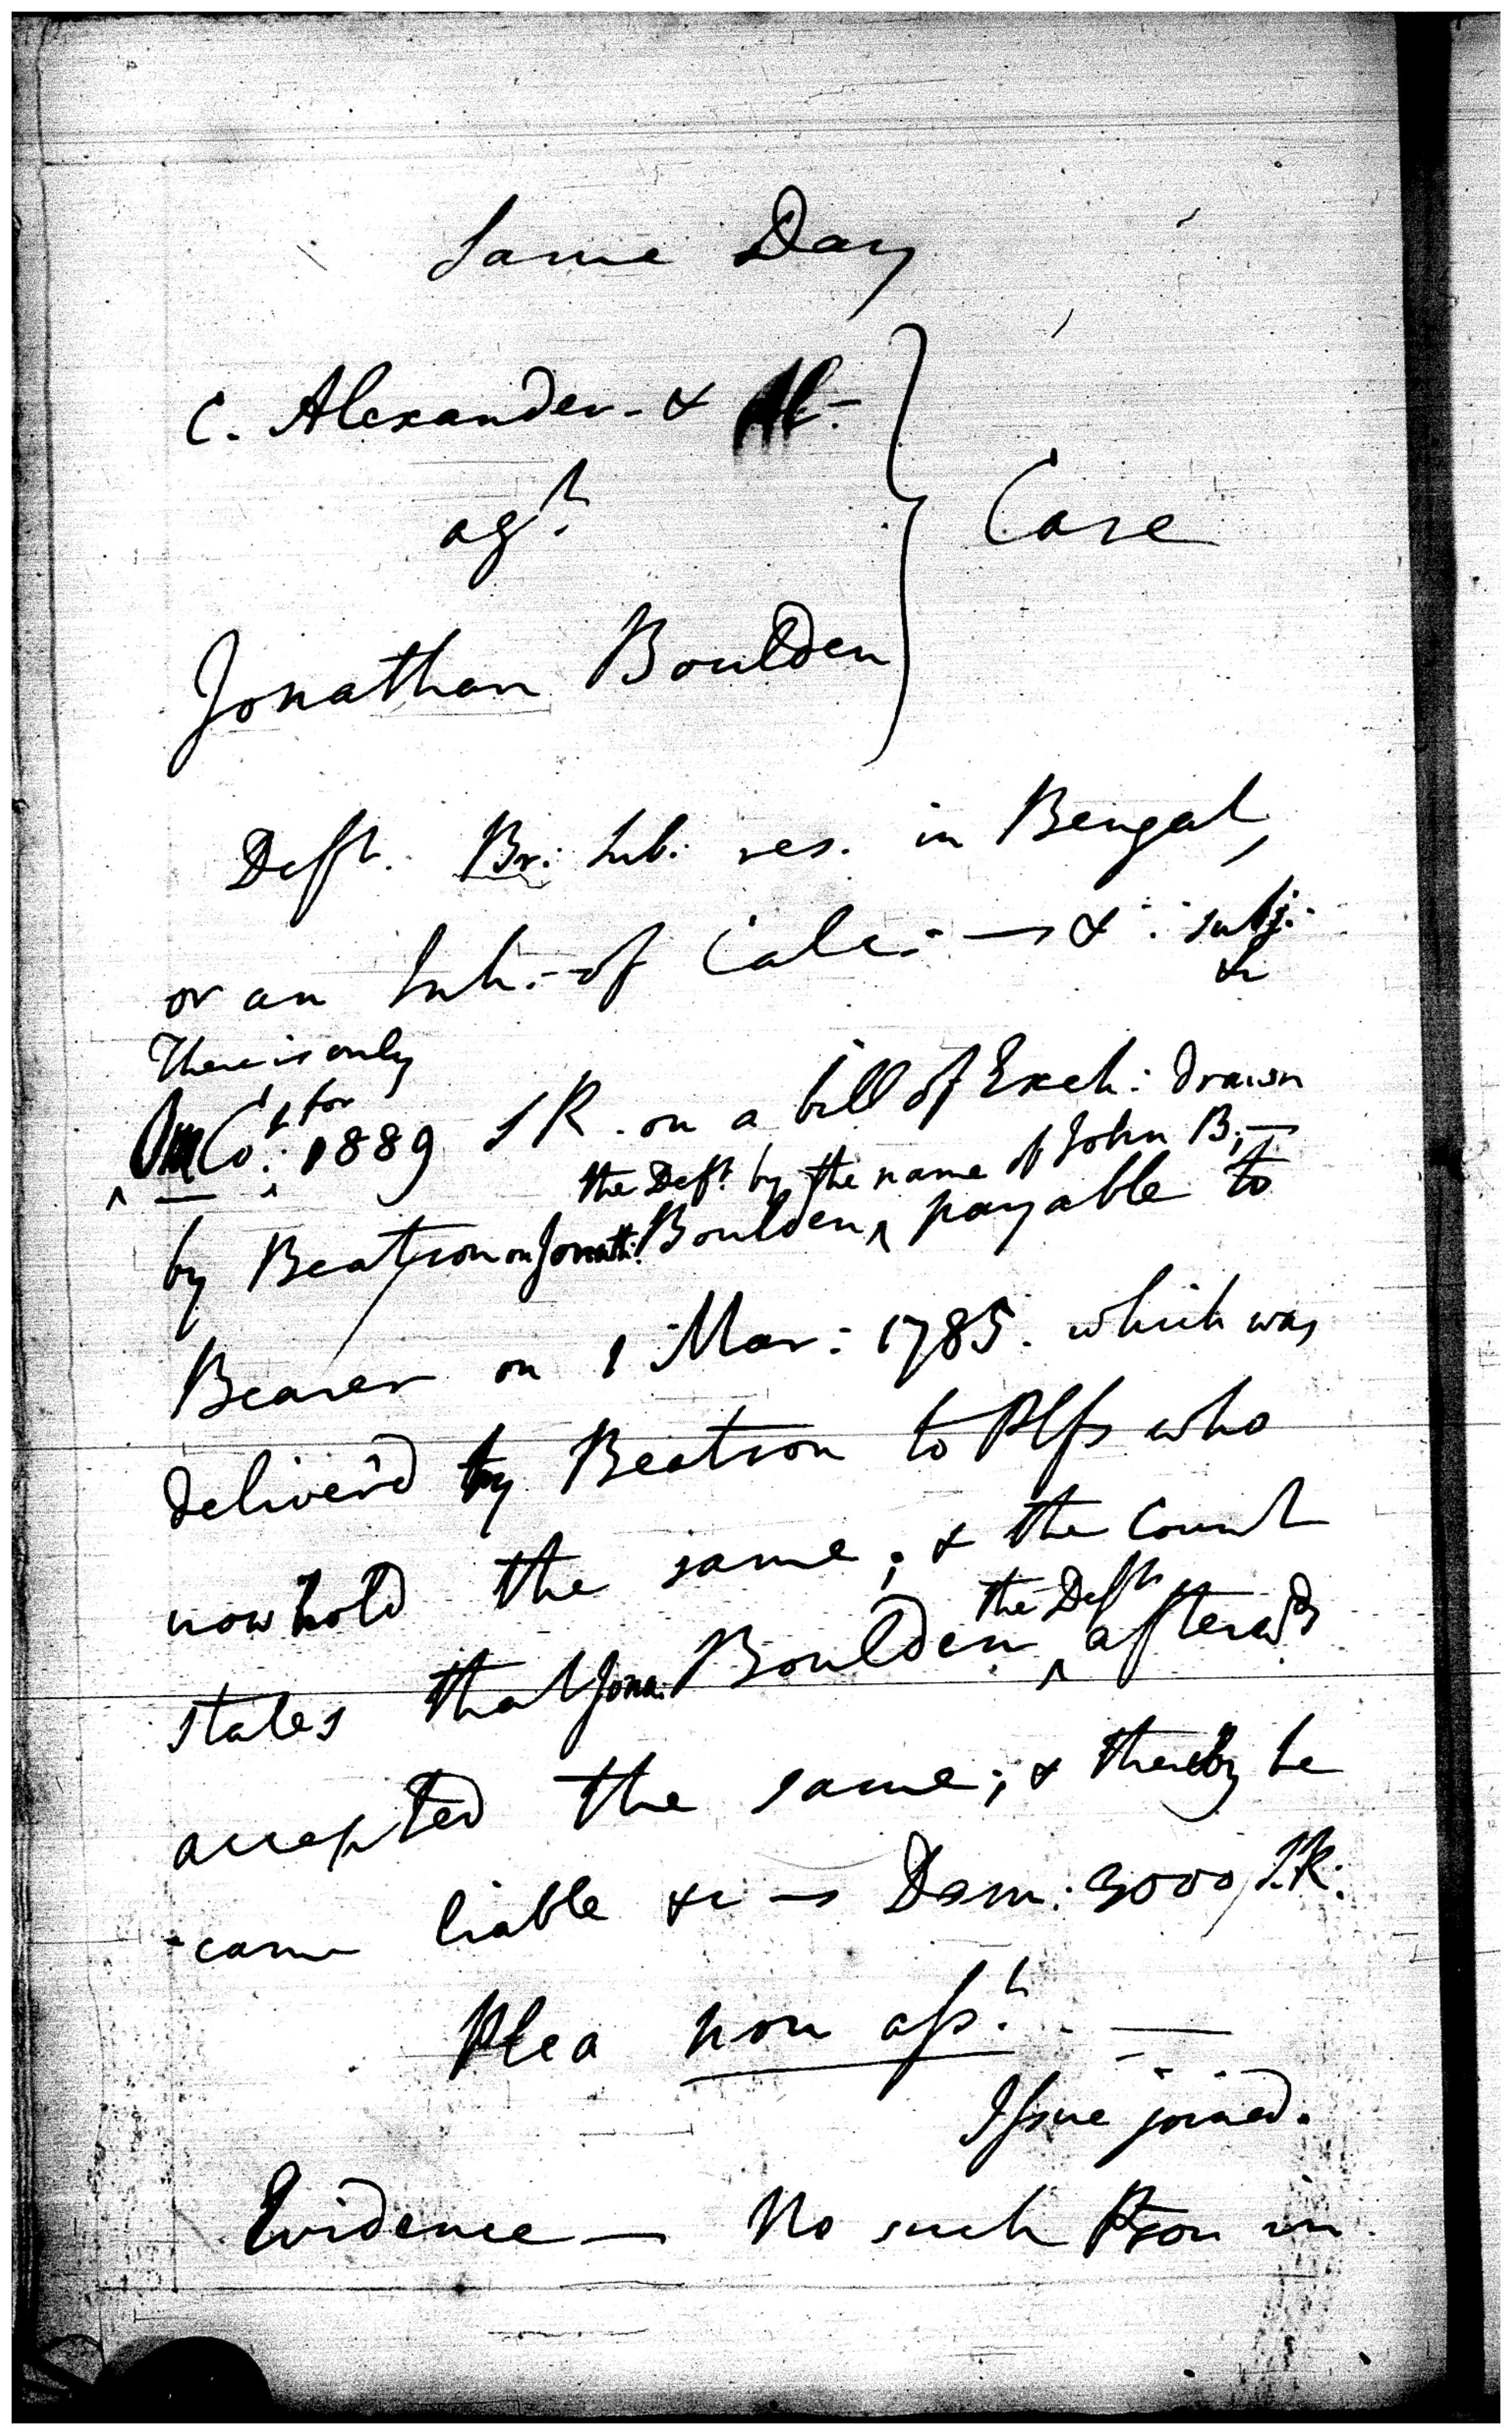 Same Day
C. Alexander - &
agt.
Jonathan Boulden
Case
Deft. Br: Sub: res. in Bengal,
or an Inh. of Calc: — & : subj:
&c
There is only
One Ct. for 1889 SR. on a bill of Exch: drawn
the Deft. by the name of John B; —
by Beatson on Jonath: Boulden, payable to
Bearer on 1 Mar: 1785. which was
deliver'd by Beatson to Plfs who
now hold the same; & the Count
the Deft
states that Jona. Boulden afterwds
accepted the same; & thereby be
-came liable &c — Dam: 3000 S.R.
Plea non asst. —
Issue joined.
Evidence — No such Pson in